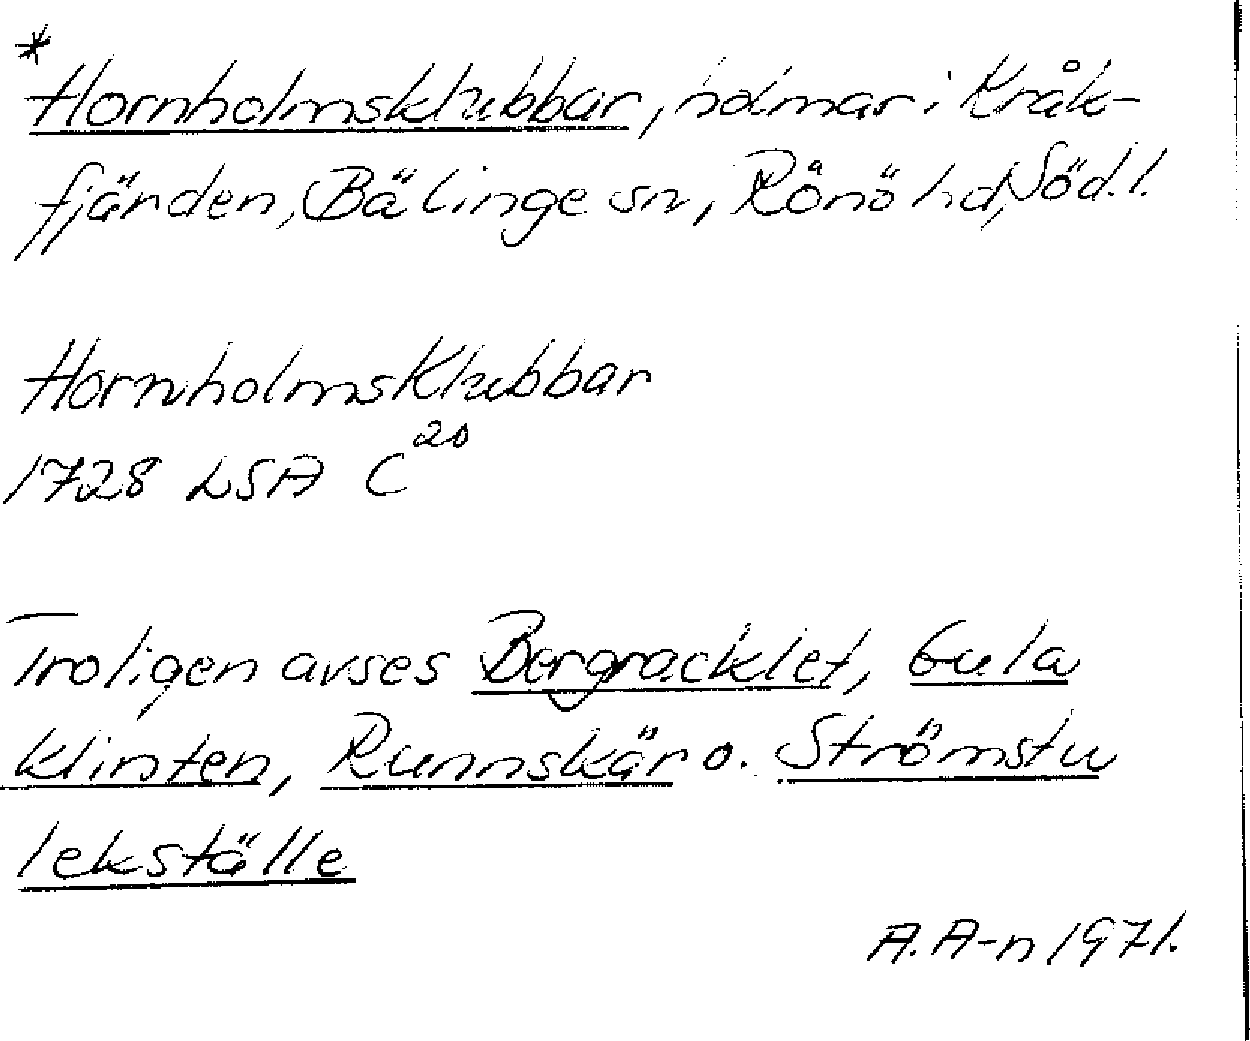 *
Hornholmsklubbar, holmar i Kråk-
fjärden, Bälinge sn, Rönö hd, Söd.l.
Hornholmsklubbar
1728 LSA C20
Troligen avses Bergracklet, Gula
klinten, Runnskär o. Strömstu
lekställe
A.A-n 1971.